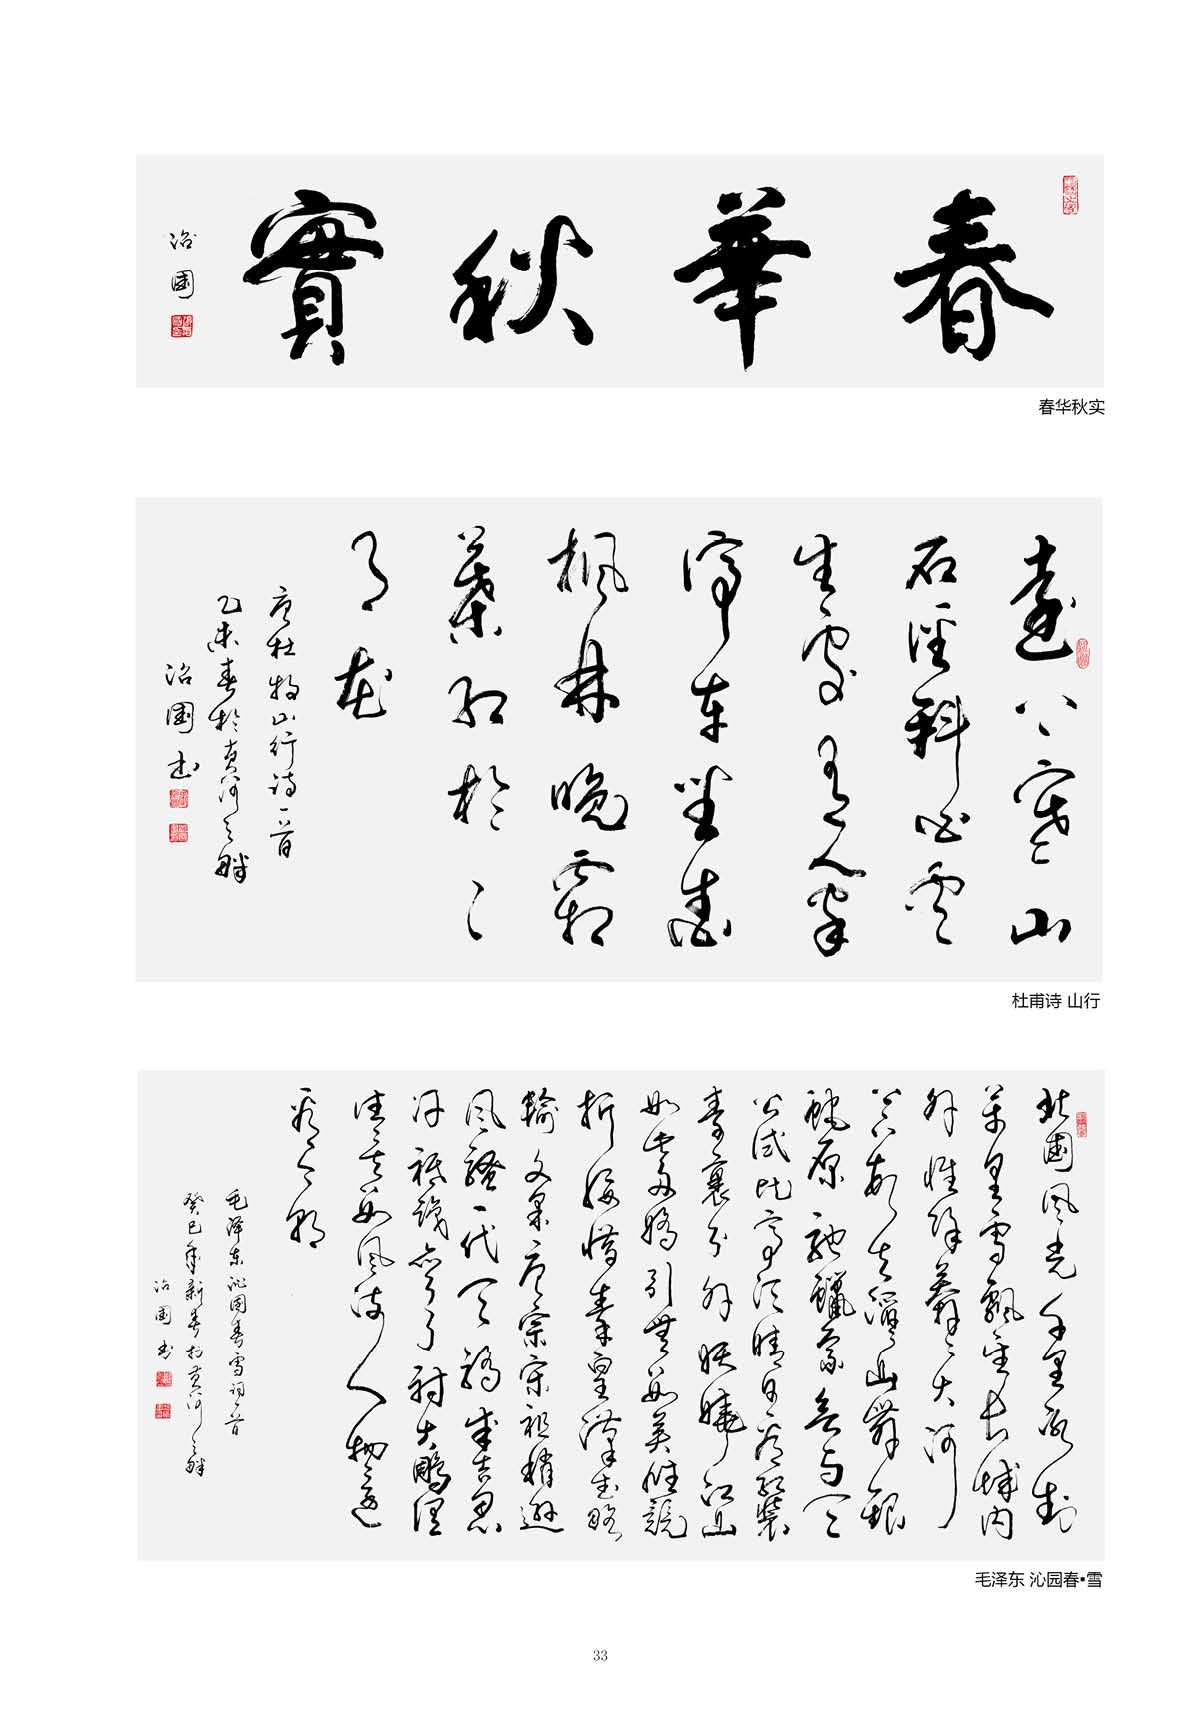 春華秋實
治國
春华秋实
遠上寒山
石徑斜白雲
生處有人家
停車坐愛
楓林晚霜
葉紅於二
月花
唐杜牧山行诗一首
乙未春於黄河之畔
治國书
杜甫诗 山行
北國风光千里冰封
萬里雪飘望长城内
外惟馀莽莽大河
上下顿失滔滔山舞银
蛇原驰蠟象欲与天
公试比高须晴日看红装
素裹分外妖娆江山
如此多嬌引無數英雄競
折腰惜秦皇漢武略
输文采唐宗宋祖稍逊
风骚一代天骄成吉思
汗祇識弯弓射大雕俱
往矣數风流人物還
看今朝
毛泽东沁园春雪词一首
癸巳年新春於黄河之畔
治國书
毛泽东 沁园春•雪
33